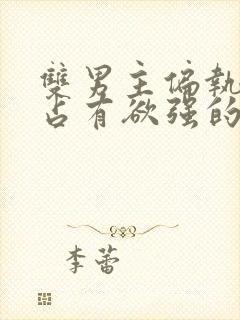 雙男主偏執
占有欲強的
李蕾